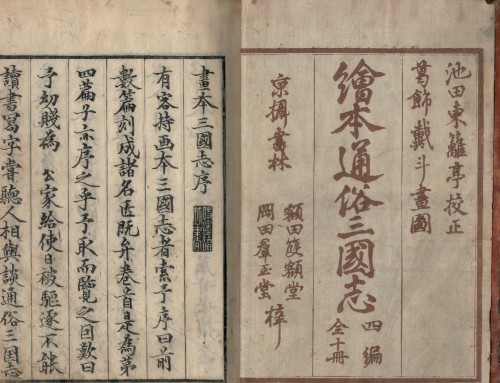 池田東籬亭校正
葛飾戴斗畫圖
繪本通俗三國志
四編
全十冊
京攝書林
額田雙額堂
岡田羣玉堂
梓
畫本三國志序
有客持画本三國志者索予序曰前
數篇刻成諸名匠既弁卷首是為第
四篇子亦序之乎予取而覽之因歎曰
予幼賤為公家給使日被驅逐不能
讀書寫字嘗聽人相與談通俗三国志